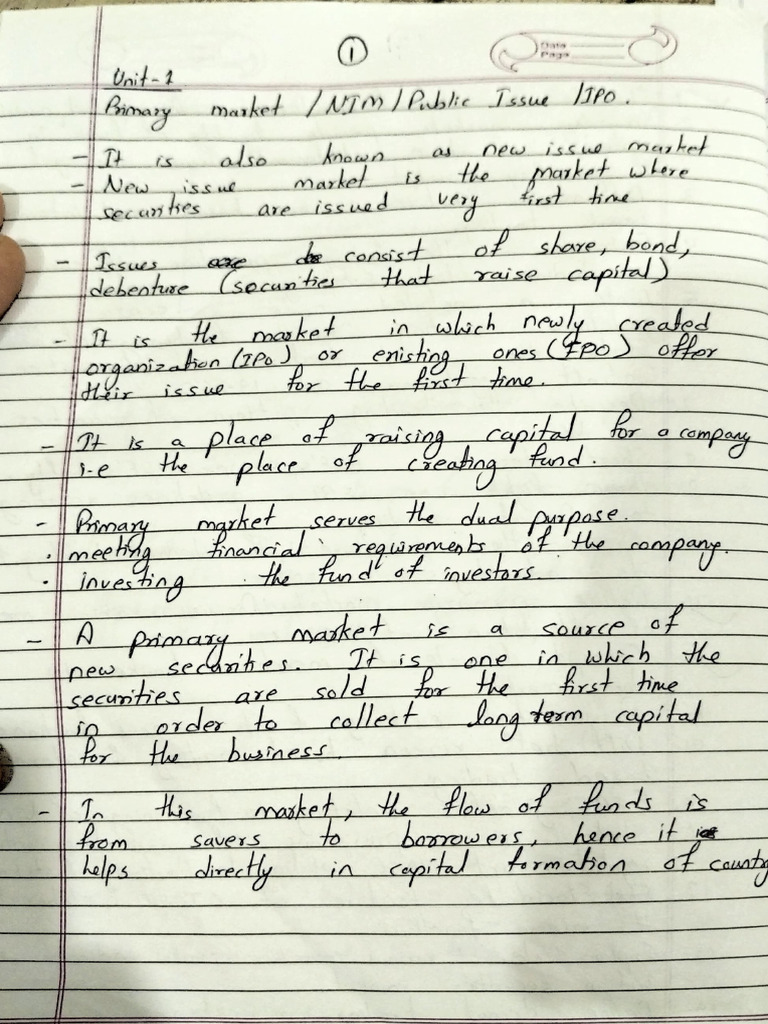 1
Data
Page
Unit-1
Primary market / NIM / Public Issue / IPO.
- It is also known as new issue market
- New issue market is the market where
securities are issued very first time
- Issues consist of share, bond,
debenture (securities that raise capital)
- It is the market in which newly created
organization (IPO) or existing ones (FPO) offer
their issue for the first time.
- It is a place of raising capital for a company
i-e the place of creating fund.
- Primary market serves the dual purpose.
. meeting financial requirements of the company.
. investing the fund of investors.
- A primary market is a source of
new securities. It is one in which the
securities are sold for the first time
in order to collect long term capital
for the business.
- In this market, the flow of funds is
from savers to borrowers, hence it
helps directly in capital formation of county